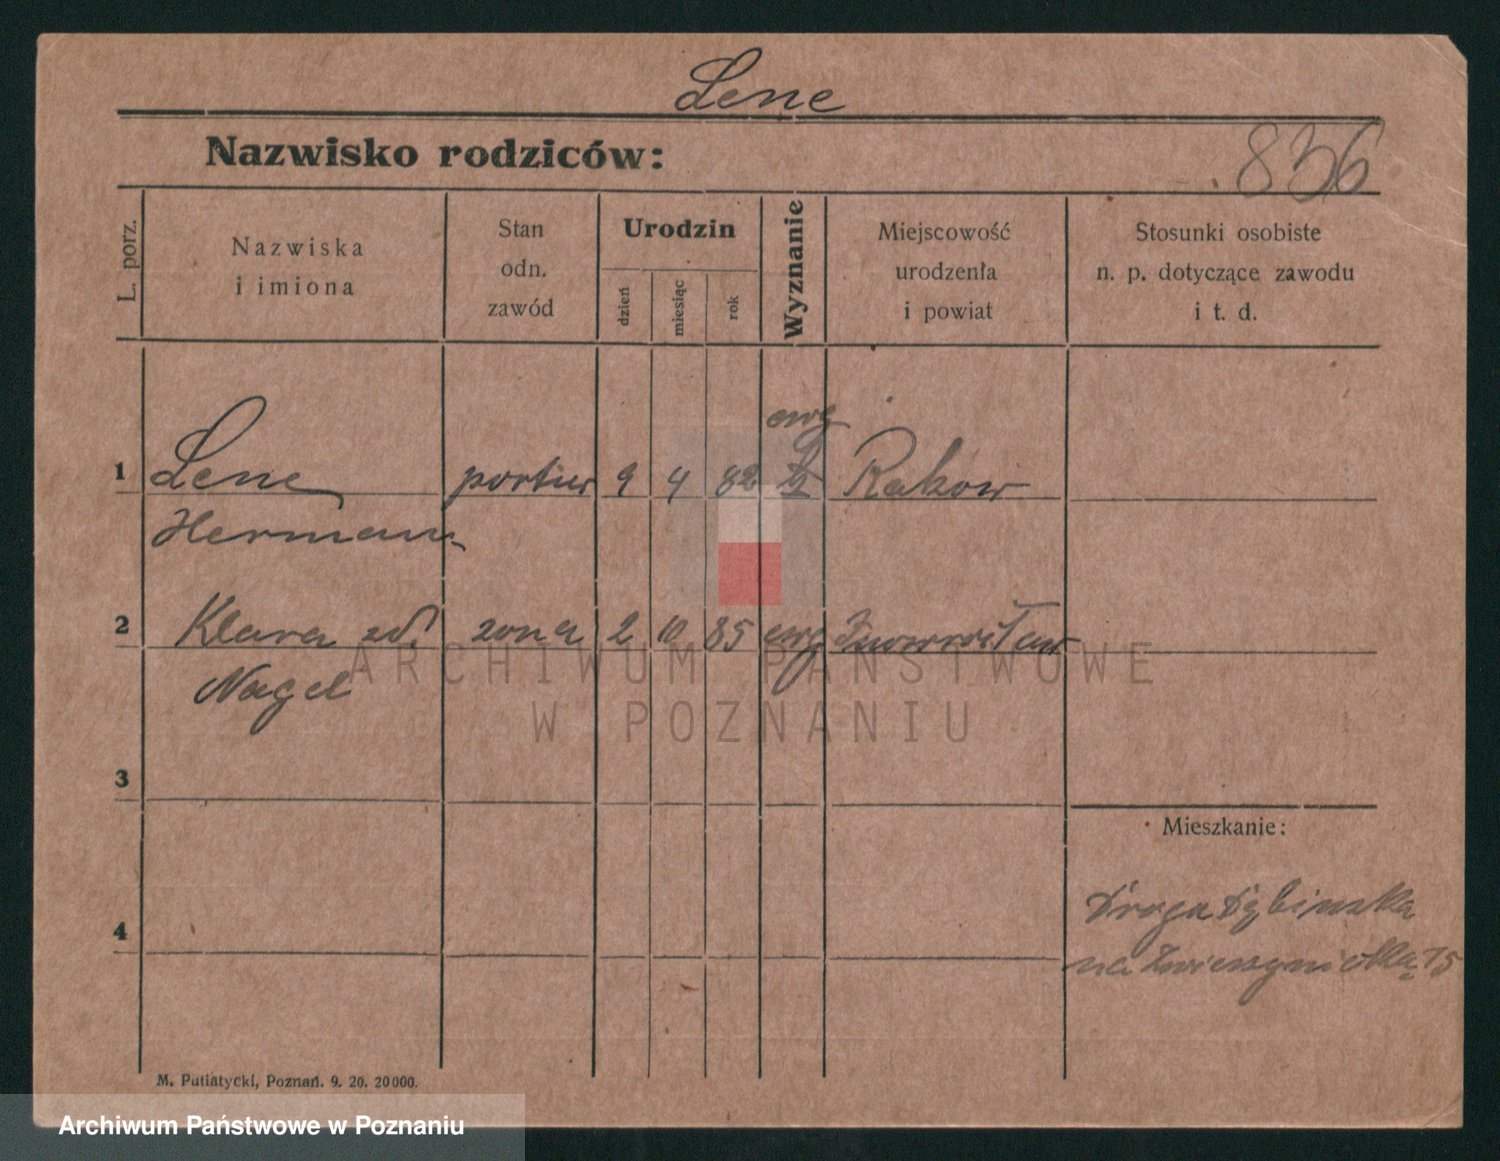 Lene
Nazwisko rodziców:
836
L. porz.
Nazwiska
i imiona
Stan
odn.
zawód
Urodzin
dzień
miesiąc
rok
Wyznanie
Miejscowość
urodzenia
i powiat
Stosunki osobiste
n. p. dotyczące zawodu
i t. d.
ewg
1 Lene portier 9 4 82 Rakow
Herman
2 Klara zd. żona 2 10 85 ewg Inowrocław
Nagel
ARCHIWUM PAŃSTWOWE
W POZNANIU
3
Mieszkanie:
4
Droga Dębinska
na Zwierzyniecką 15
M. Putiatycki, Poznań. 9. 20. 20000.
Archiwum Państwowe w Poznaniu